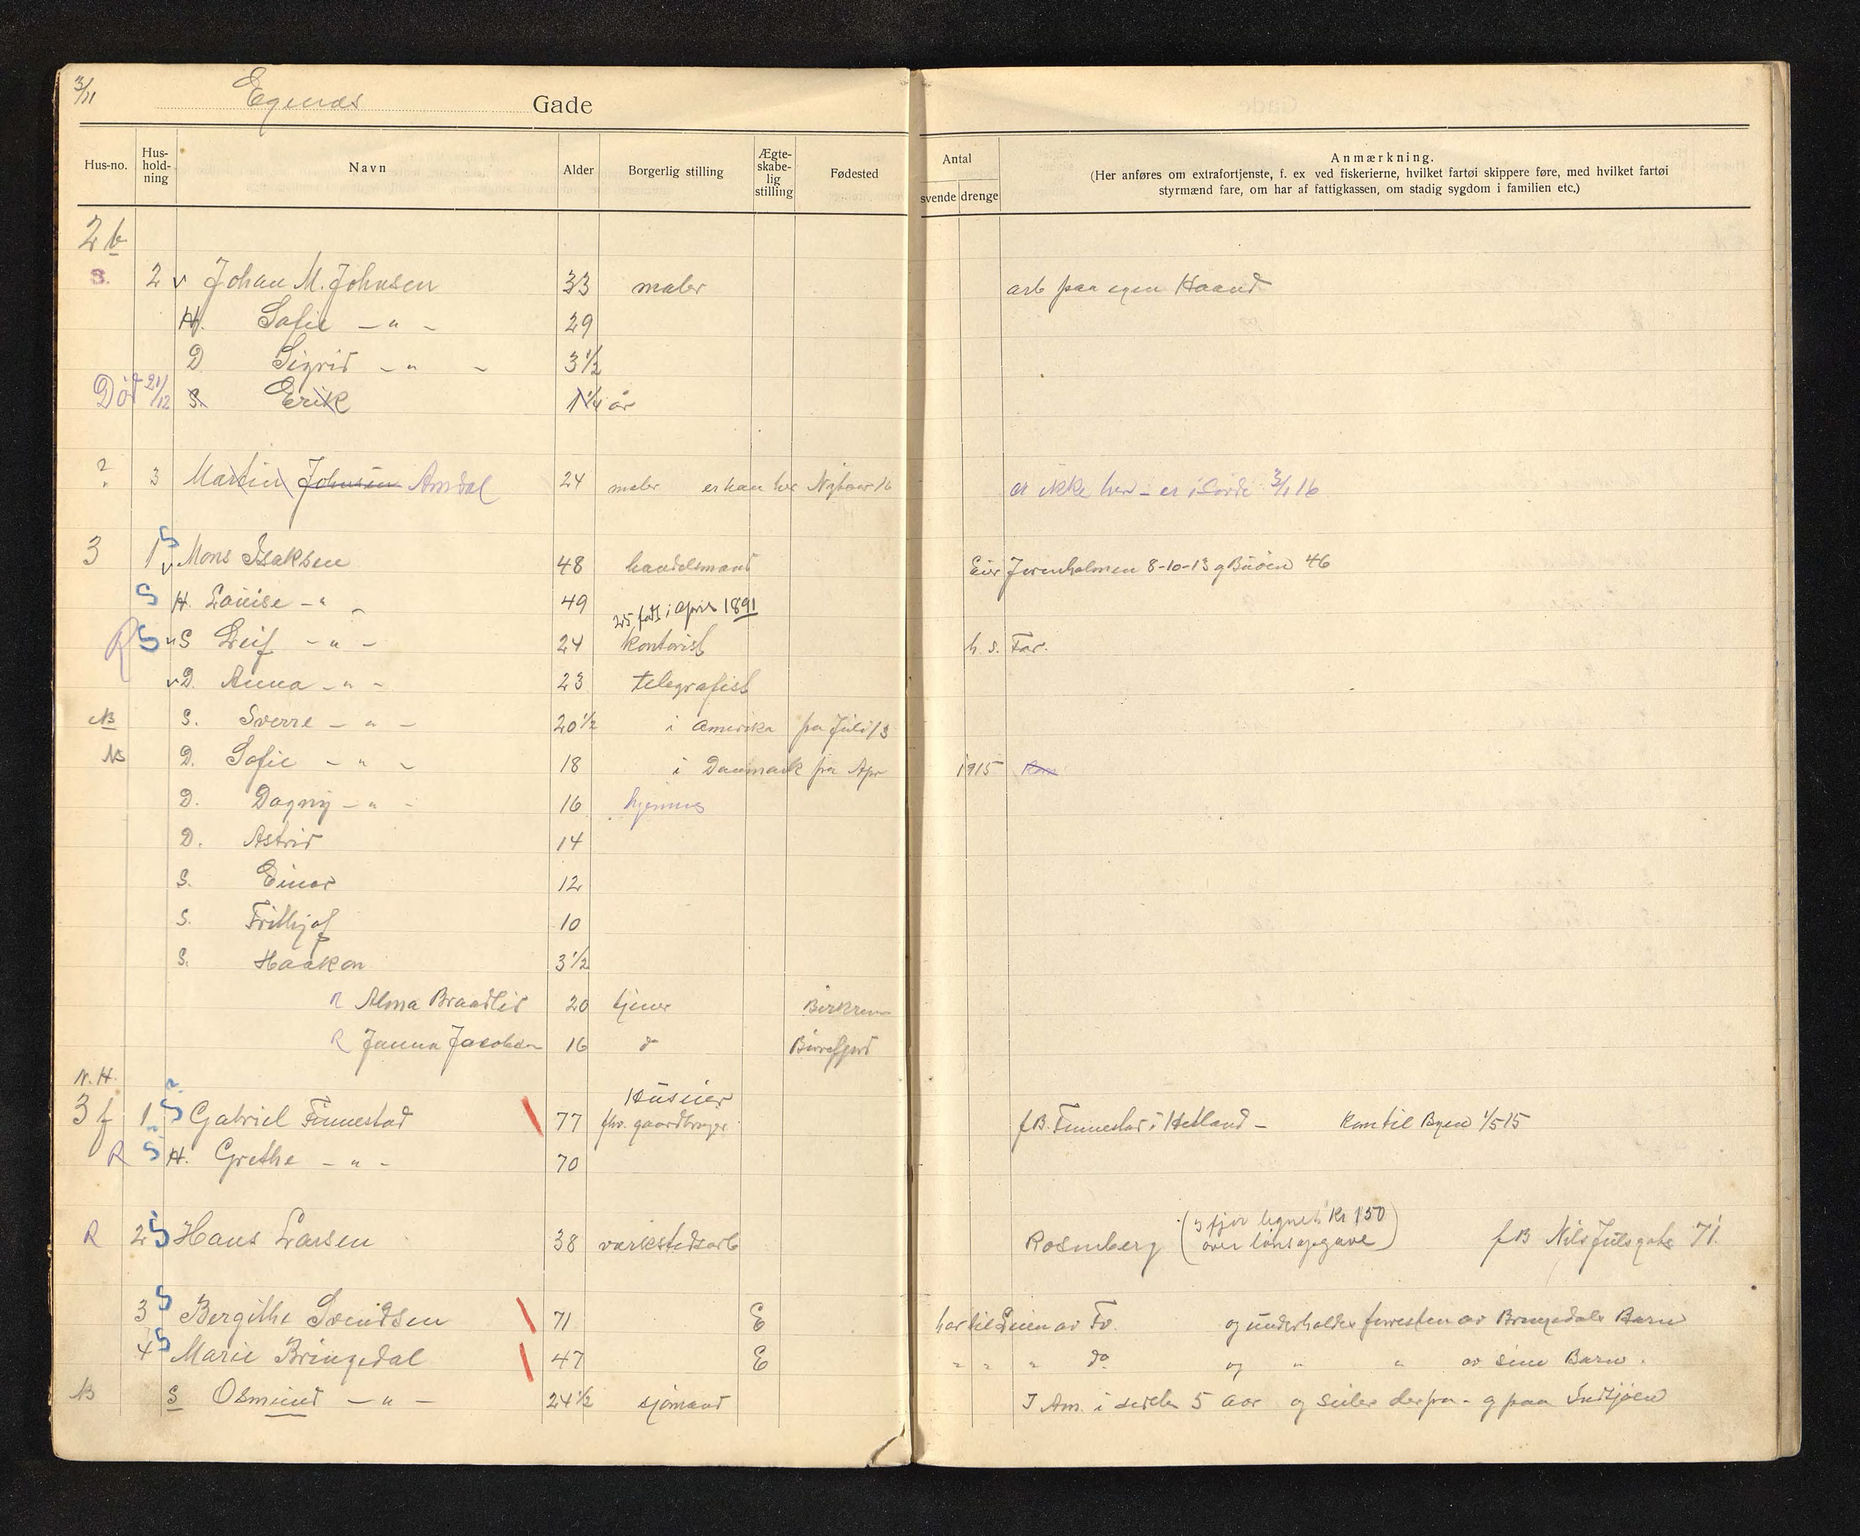 3/11 Egenæs Gade
Hus-no. Hus-hold-ning Navn Alder Borgerlig stilling Ægte-skabe-lig stilling Fødested Antal svende drenge Anmærkning.
(Her anføres om extrafortjenste, f. ex ved fiskerierne, hvilket fartøi skippere føre, med hvilket fartøi
styrmænd fare, om har af fattigkassen, om stadig sygdom i familien etc.)
2 b
S. 2 v Johan M. Johnsen 33 maler arb paa egen Haand
H. Sofie – " – 29
D Sigrid – " – 3 1/2
Død 21/12 S. Erik 1 1/4 år
? 3 Martin Johnsen Amdal 24 maler er han her Nytaar 16 er ikke her – er i 3/1 16
3 1 S v Mons Isaksen 48 handelsmand Eier Jernholmen 8-10-13 g Buøen 46
S H. Louise – " – 49
25 født i april 1891
R S v S Leif – " – 24 kontorist h. s. Far.
v D. Anna – " – 23 telegrafist
NB S. Sverre – " – 20 1/2 i Amerika fra Juli 13
NB D. Sofie – " – 18 i Danmark fra Apr 1915
D. Dagny – " – 16 hjemme
D. Astrid 14
S. Einar 12
S. Frithjof 10
S. Haakon 3 1/2
R Alma Braadlid 20 tjener Birkrem
R Janna Jacobsen 16 do
N. H.
Huseier
3 f 1 S? Gabriel Finnestad 77 fhv. gaardbruger f B. Finnestad i Hetland – Kom til Byen 1/5 15
R S H. Grethe – " – 70
R 2 S Hans Larsen 38 værkstedsarb Rosenberg (i fjor lignet Kr 150
over lønsopgave) f B Nils Juelsgate 71.
3 S Bergithe Svendsen 71 E har til Leien av Fv. og underholdes forresten av Bringedals Barn
4 S Marie Bringedal 47 E " " " do og " " av sine Barn.
NB S Osmund – " – 24 1/2 sjømand I Am. i sidste 5 aar og seiler derfra – g paa Indsjøen